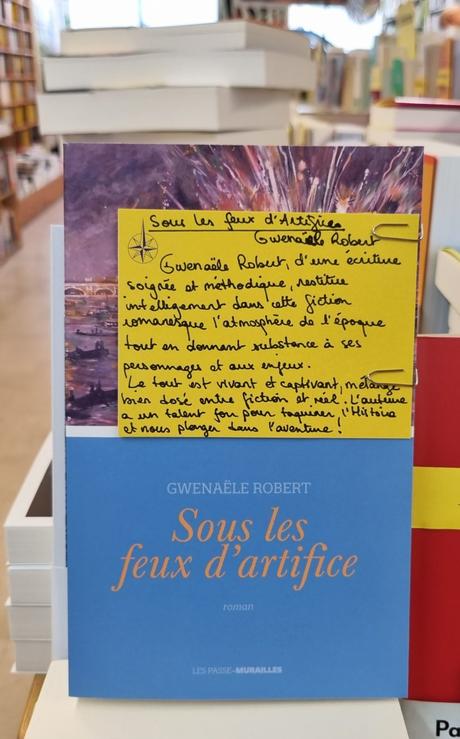 Sous les feux d'Artifices
Gwenaële Robert
Gwenaële Robert, d'une écriture
soignée et méthodique, restitue
intelligemment dans cette fiction
romanesque l'atmosphère de l'époque
tout en donnant substance à ses
personnages et aux enjeux.
Le tout est vivant et captivant, mélange
bien dosé entre fiction et réel. L'auteure
a un talent fou pour taquiner l'Histoire
et nous plonger dans l'aventure !
GWENAËLE ROBERT
Sous les
feux d'artifice
roman
LES PASSE-MURAILLES
Pa